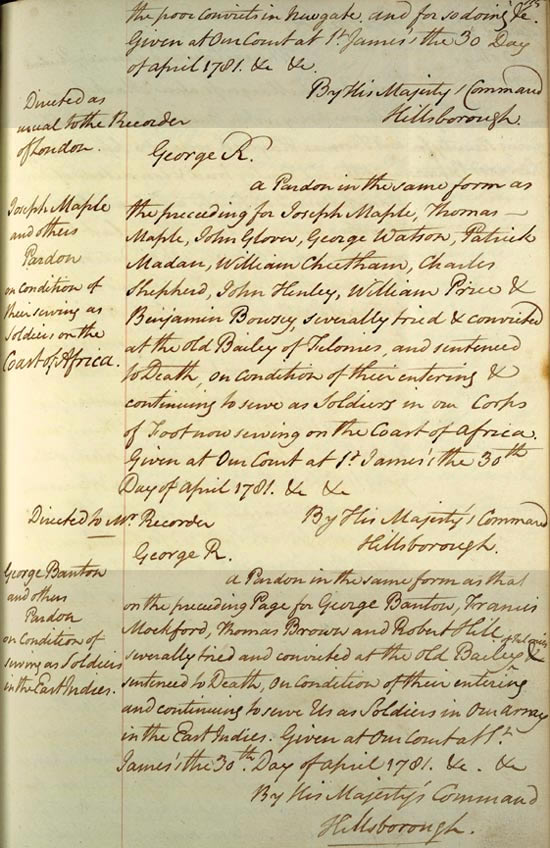 the poor convicts in Newgate. and for so doing &c.
Given at Our Court at St. James's the 30 Day
of April 1781. &c &c.
By His Majesty's Command
Hillsborough.
Directed as
usual to the Recorder
of London.
George R.
Joseph Maple
and others
Pardon
on condition of
their serving as
Soldiers on the
Coast of Africa.
A Pardon in the same form as
the preceding for Joseph Maple, Thomas
Maple, John Glover, George Watson, Patrick
Madan, William Cheetham, Charles
Shepherd, John Henley, William Price &
Benjamin Bowsey, severally tried & convicted
at the Old Bailey of Felonies, and sentenced
to Death, on condition of their entering &
continuing to serve as Soldiers in our Corps
of Foot now serving on the Coast of Africa.
Given at Our Court at St. James's the 30th
Day of April 1781. &c &c
Directed to Mr. Recorder
By His Majesty's Command
Hillsborough.
George R.
George Banton
and others
Pardon
on Condition of
serving as Soldiers
in the East Indies.
A Pardon in the same form as that
on the preceding Page for George Banton, Francis
Mockford, Thomas Brown and Robert Hill,
severally tried and convicted at the Old Bailey of Felonies &
sentenced to Death, on Condition of their entering
and continuing to serve Us as Soldiers in Our Army
in the East Indies. Given at Our Court at St.
James's the 30th. Day of April 1781. &c. &c
By His Majesty's Command
Hillsborough.